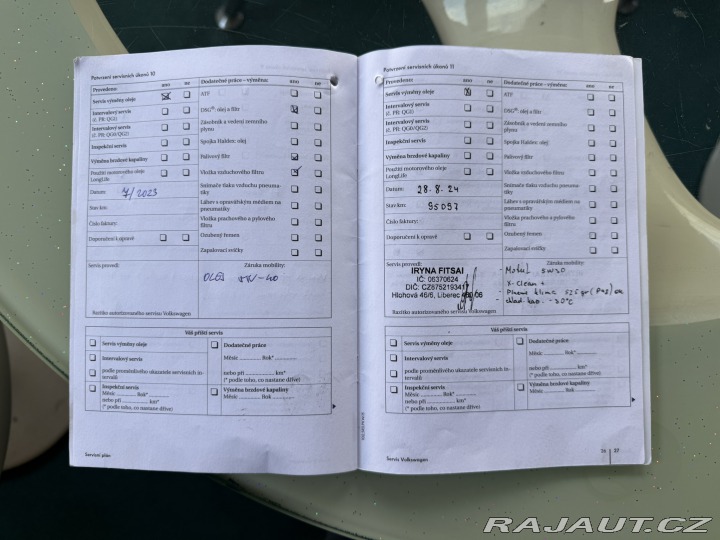 Potvrzení servisních úkonů 10
Provedeno: ano ne
Servis výměny oleje
Intervalový servis
(č. PR: QG1)
Intervalový servis
(č. PR: QG0/QG2)
Inspekční servis
Výměna brzdové kapaliny
Použití motorového oleje
LongLife
Datum: 7/2023
Stav km:
Číslo faktury:
Doporučení k opravě
Dodatečné práce – výměna: ano ne
ATF
DSG®: olej a filtr
Zásobník a vedení zemního
plynu
Spojka Haldex: olej
Palivový filtr
Vložka vzduchového filtru
Snímače tlaku vzduchu pneuma-
tiky
Láhev s opravářským médiem na
pneumatiky
Vložka prachového a pylového
filtru
Ozubený řemen
Zapalovací svíčky
Servis provedl:
Záruka mobility:
OLEJ 5W-40
Razítko autorizovaného servisu Volkswagen
Váš příští servis
Servis výměny oleje
Intervalový servis
podle proměnlivého ukazatele servisních in-
tervalů
Inspekční servis
Měsíc Rok*
nebo při km*
(* podle toho, co nastane dříve)
Dodatečné práce
Měsíc Rok*
nebo při km*
(* podle toho, co nastane dříve)
Výměna brzdové kapaliny
Měsíc Rok*
Servisní plán
Potvrzení servisních úkonů 11
Provedeno: ano ne
Servis výměny oleje
Intervalový servis
(č. PR: QG1)
Intervalový servis
(č. PR: QG0/QG2)
Inspekční servis
Výměna brzdové kapaliny
Použití motorového oleje
LongLife
Datum: 28.8.24
Stav km: 95097
Číslo faktury:
Doporučení k opravě
Dodatečné práce – výměna: ano ne
ATF
DSG®: olej a filtr
Zásobník a vedení zemního
plynu
Spojka Haldex: olej
Palivový filtr
Vložka vzduchového filtru
Snímače tlaku vzduchu pneuma-
tiky
Láhev s opravářským médiem na
pneumatiky
Vložka prachového a pylového
filtru
Ozubený řemen
Zapalovací svíčky
Servis provedl:
Záruka mobility:
IRYNA FITSAI
IČ: 06370624
Hlohová 46/6, Liberec
- Motul 5W30
X-Clean +
Razítko autorizovaného servisu Volkswagen
Váš příští servis
Servis výměny oleje
Intervalový servis
podle proměnlivého ukazatele servisních in-
tervalů
Inspekční servis
Měsíc Rok*
nebo při km*
(* podle toho, co nastane dříve)
Dodatečné práce
Měsíc Rok*
nebo při km*
(* podle toho, co nastane dříve)
Výměna brzdové kapaliny
Měsíc Rok*
Servis Volkswagen
RAJAUT.CZ